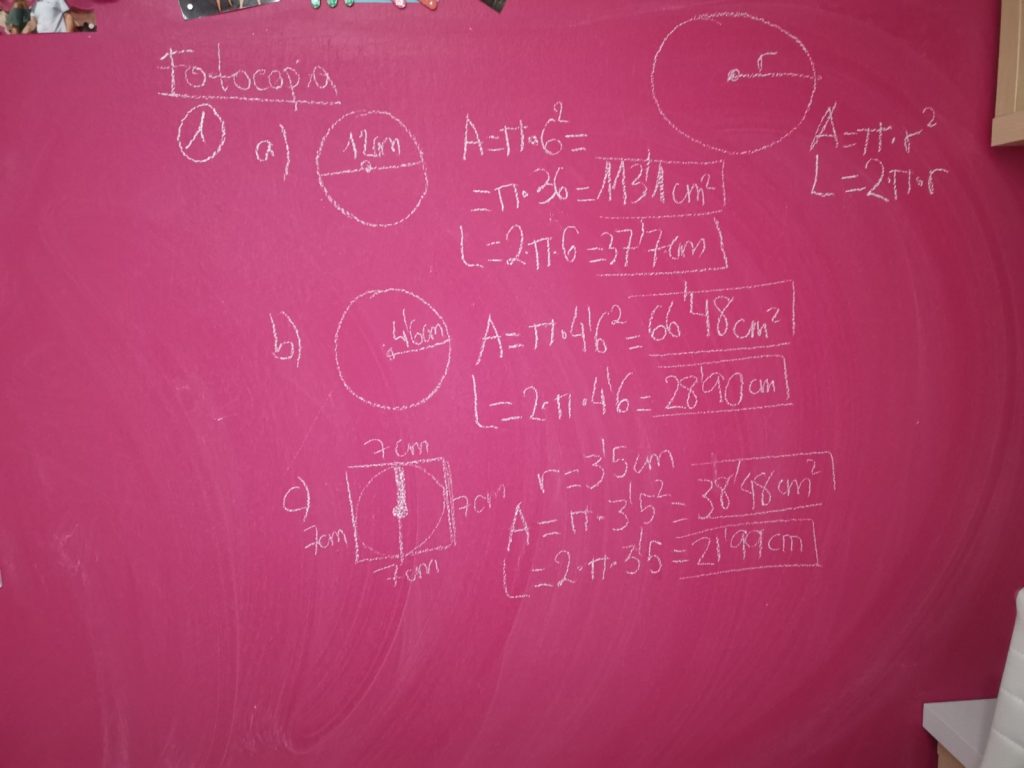 Fotocopia
r
A=π·r²
L=2π·r
1
a)
12cm
A=π·6²=
=π·36=113'1cm²
L=2·π·6=37'7cm
b)
4'6cm
A=π·4'6²=66'48cm²
L=2·π·4'6=28'90cm
c)
7cm
7cm
7cm
7cm
r=3'5cm
A=π·3'5²=38'48cm²
L=2·π·3'5=21'99cm